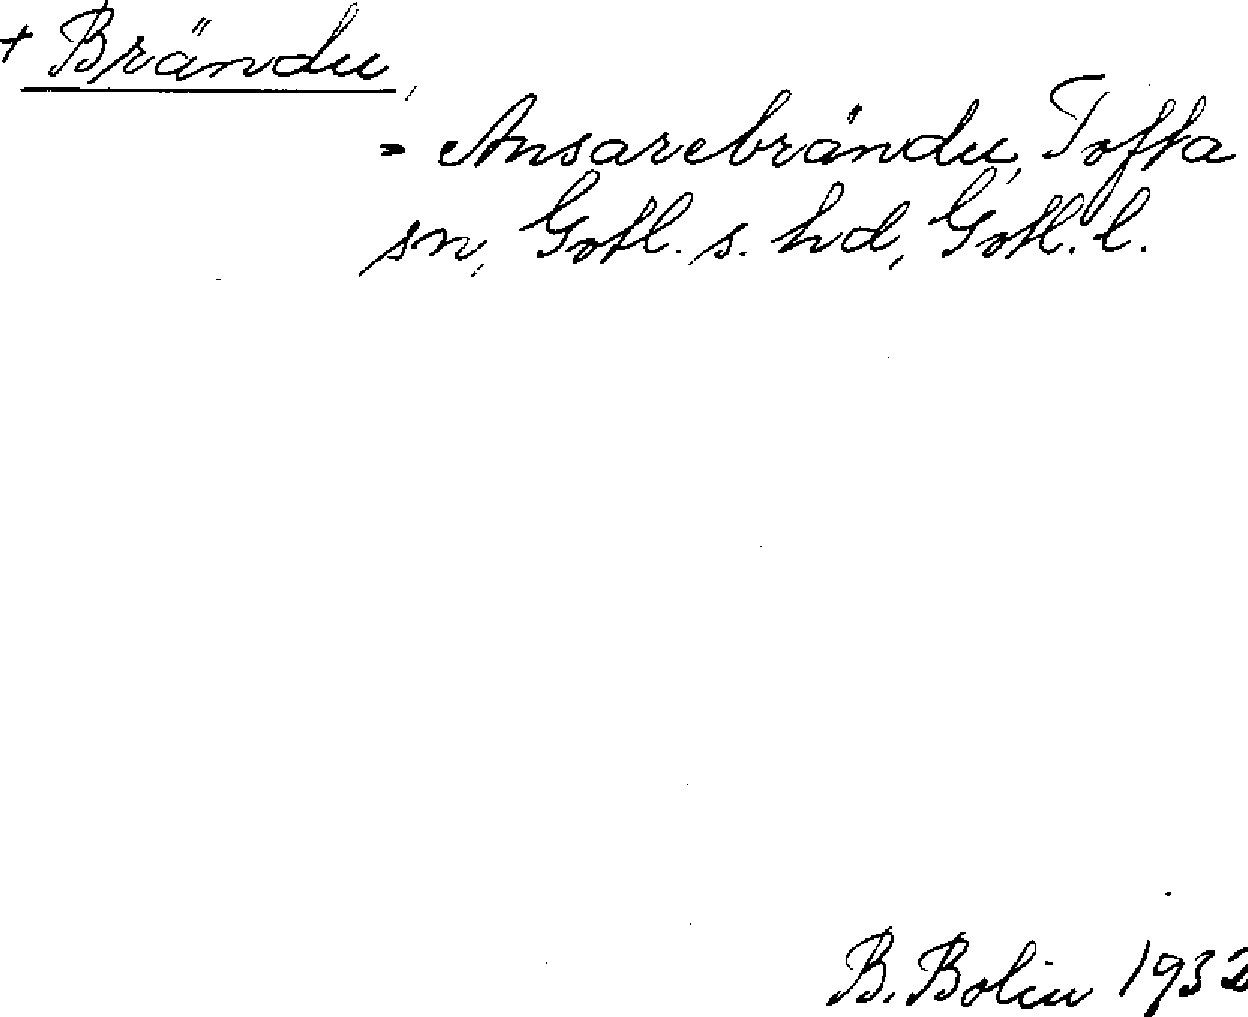 + Brändu,
= Ansarebrändu, Tofta
sn, Gotl. s. hd, Gotl. l.
B. Bolin 1932